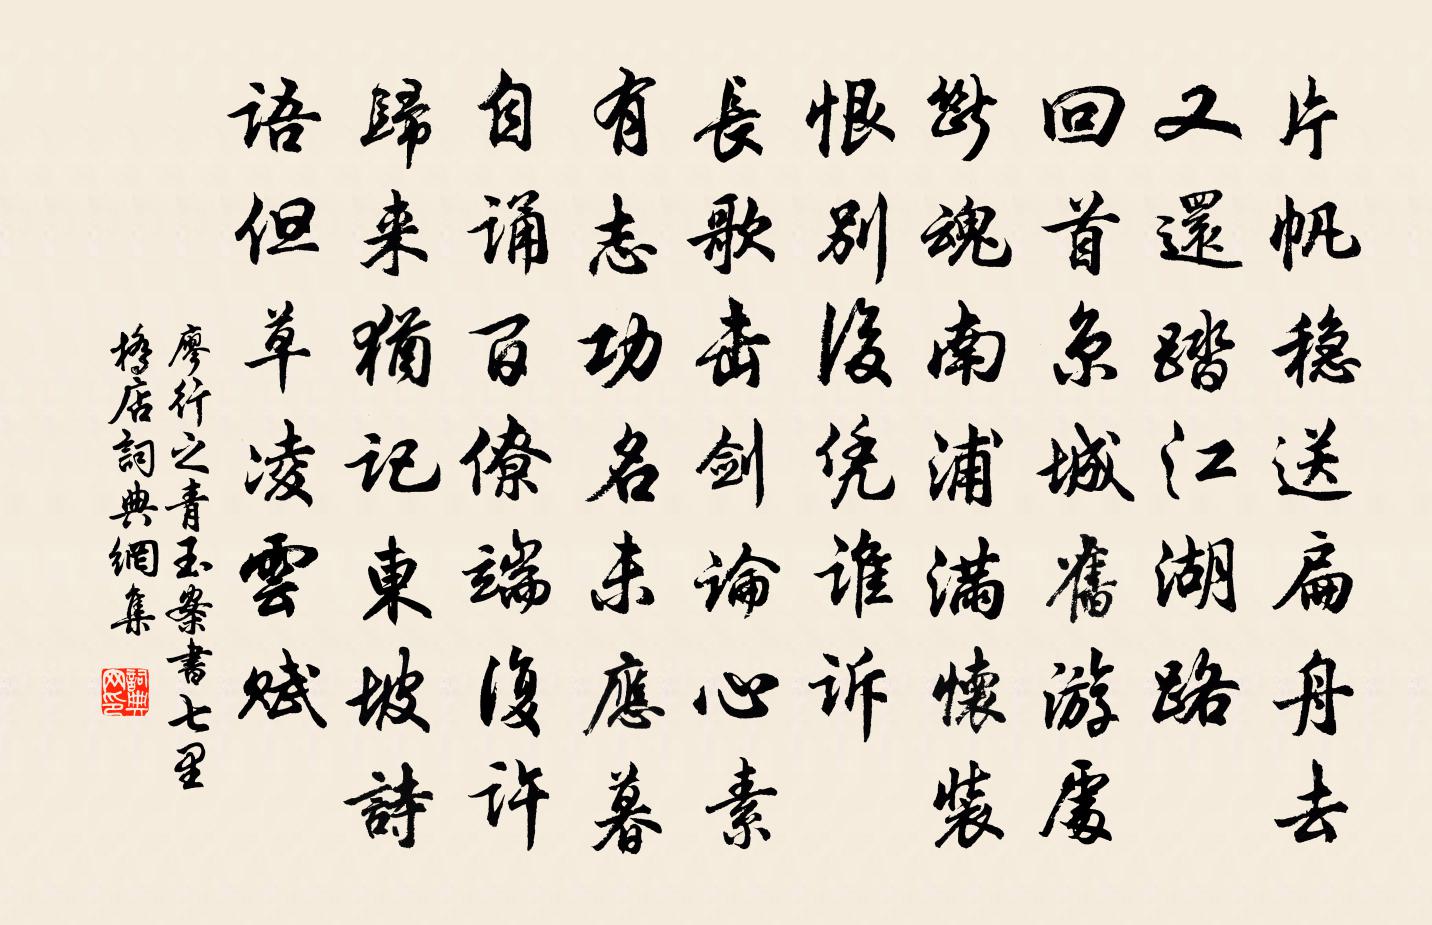 片帆穏送扁舟去
又還踏江湖路
回首京城舊游處
斷魂南浦滿懷裝
恨別後凭誰訴
長歌击剑論心素
有志功名未應暮
自誦百僚端復許
歸来猶記東坡詩
語但草凌雲賦
廖行之青玉案書七里
橋店詞典網集
詞典